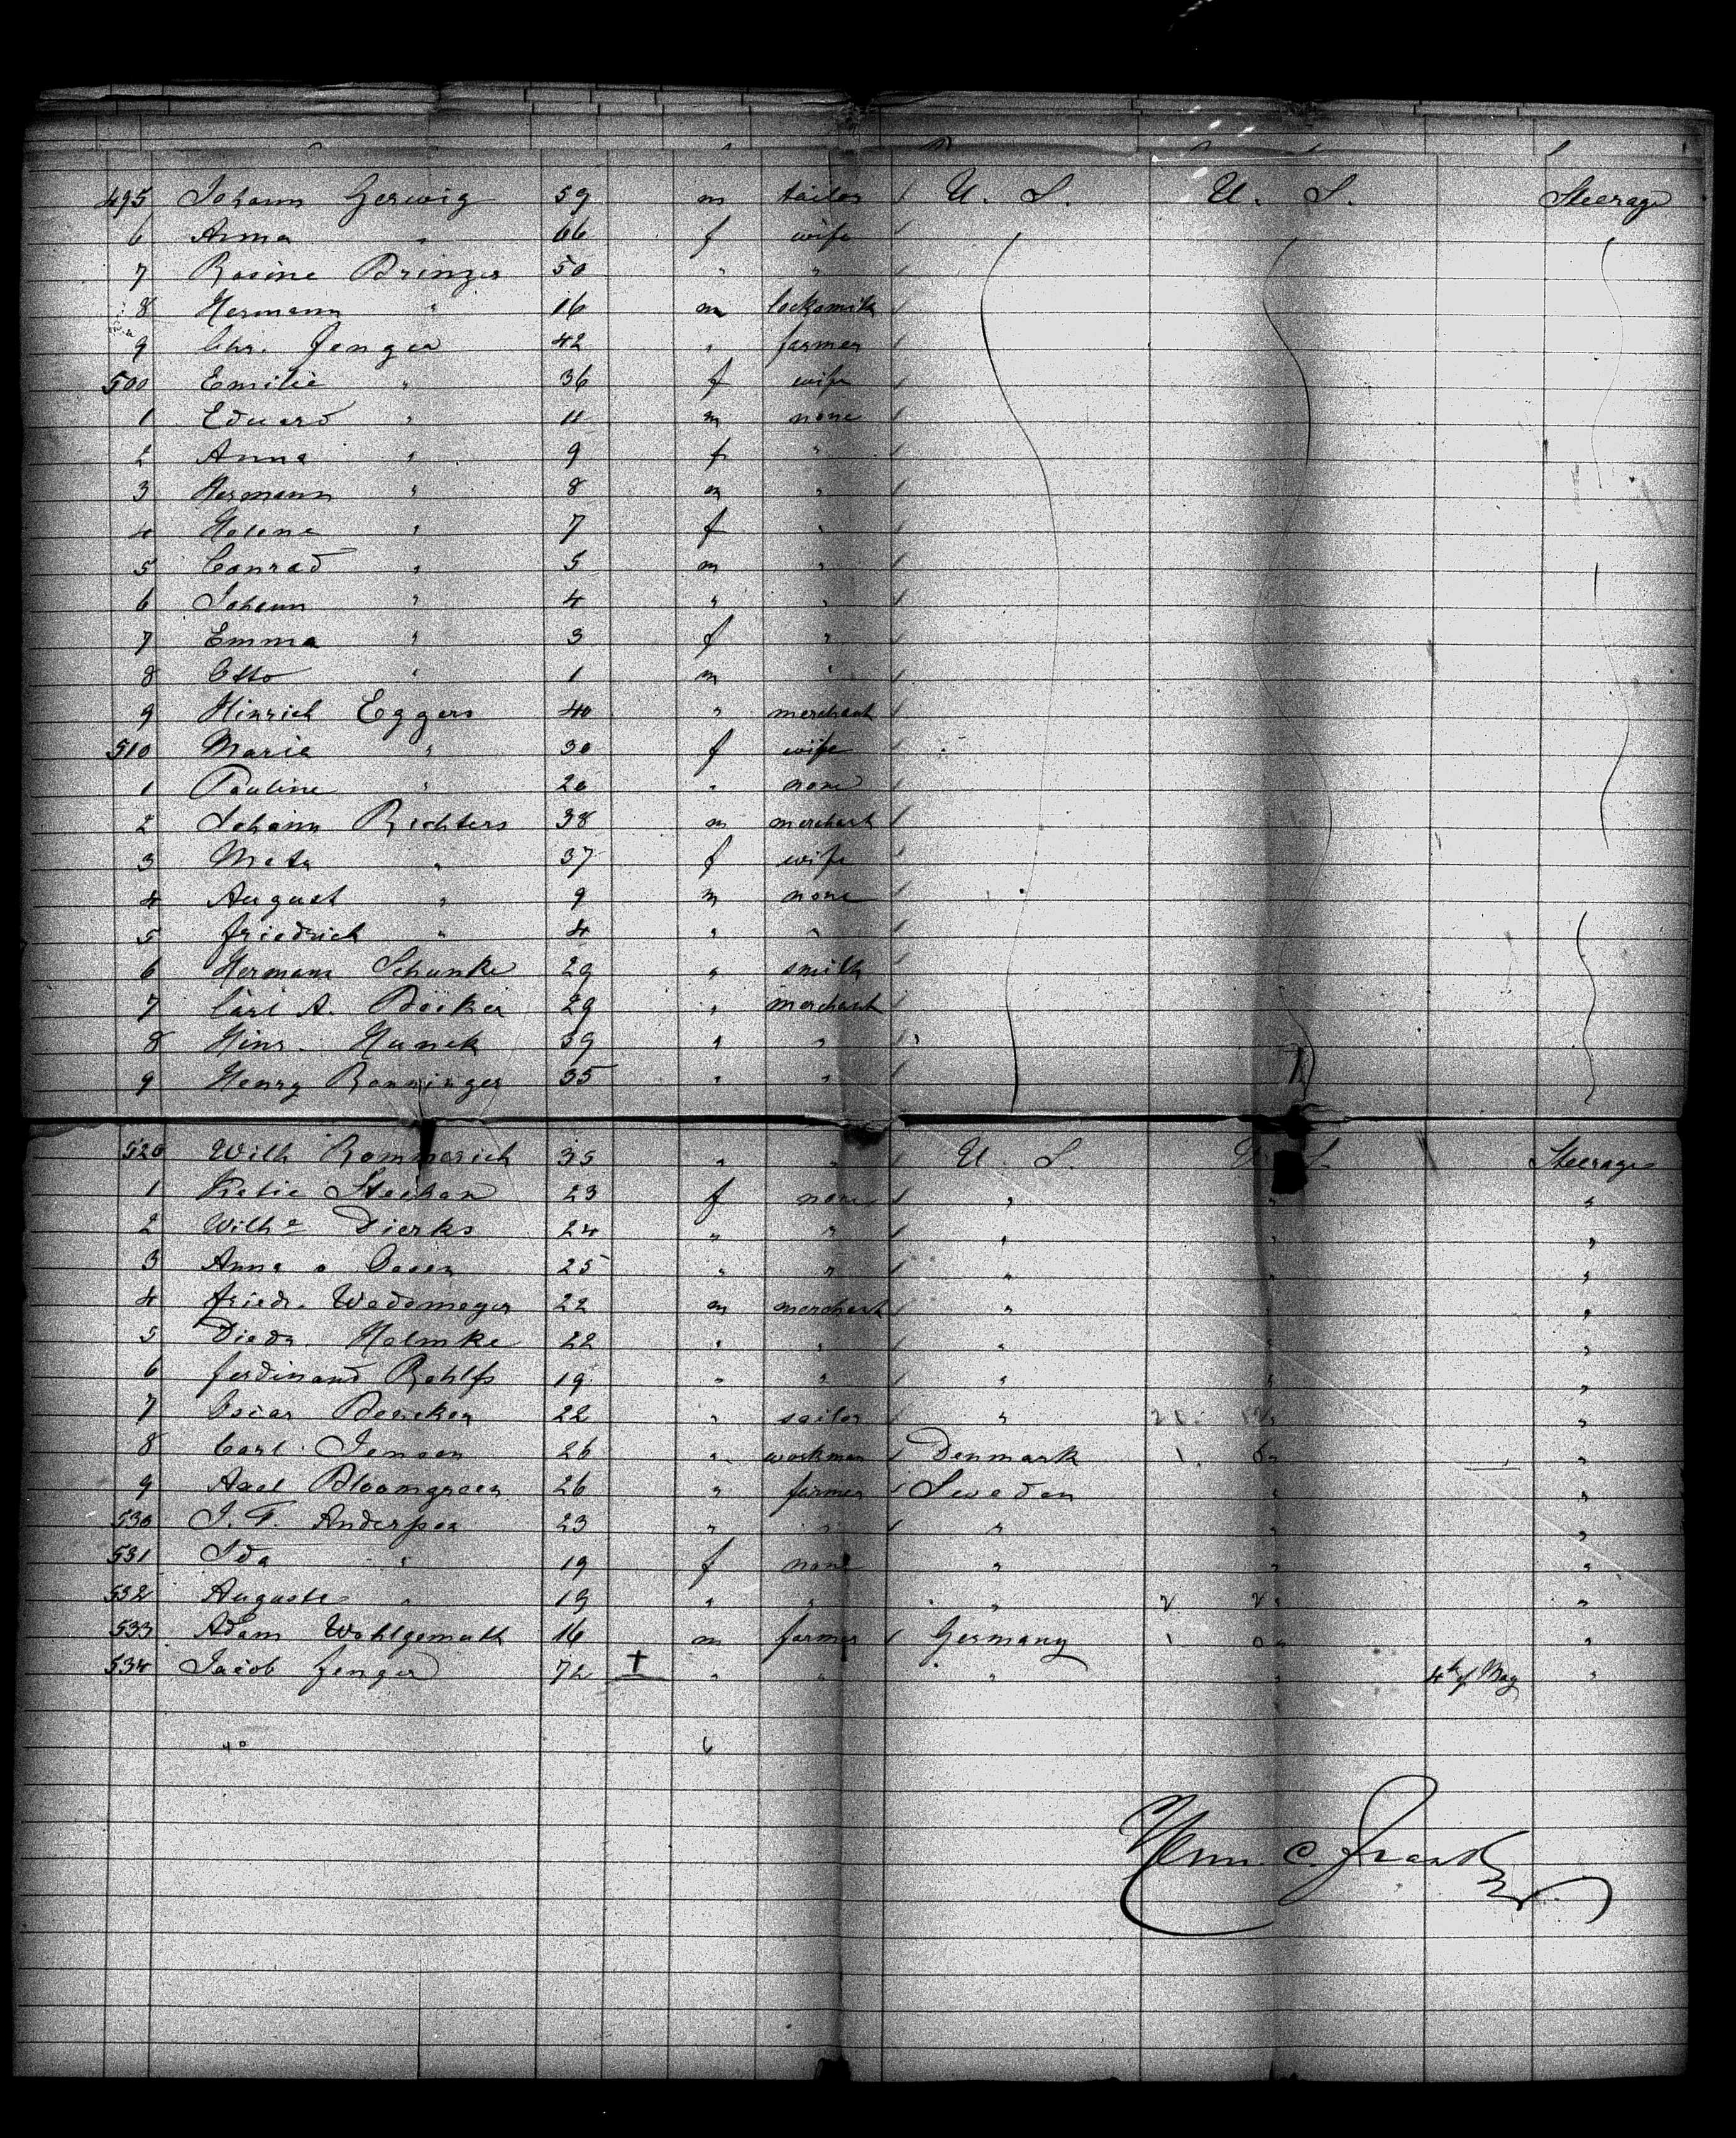 495 Johann Gerwig 59 m tailor U. S. U. S. Steerage
6 Anna " 66 f wife
7 Rosine Brinzer 50 " "
8 Hermann " 16 m locksmith
9 Chr. Jenger 42 " farmer
500 Emilie " 36 f wife
1 Eduard " 11 m none
2 Anna " 9 f "
3 Hermann " 8 m "
4 Helene " 7 f "
5 Conrad " 5 m "
6 Johann " 4 " "
7 Emma " 3 f "
8 Otto " 1 m "
9 Hinrich Eggers 40 " merchant
510 Marie " 30 f wife
1 Pauline " 20 " none
2 Johann Richters 38 m merchant
3 Meta " 37 f wife
4 August " 9 m none
5 Friedrich " 4 " "
6 Hermann Schunke 29 " smith
7 Carl A. Böcker 29 " merchant
8 Hinr. Hunck 39 " "
9 Henry Ronninger 35 " "
520 Wilh Rommerich 35 " " U. S. U. S. Steerage
1 Katie 23 f none " " "
2 Wilhe Dierks 24 " " " " "
3 Anna 25 " " " " "
4 Friedr. Wedemeyer 22 m merchant " " "
5 Diedr. Helmke 22 " " " " "
6 Ferdinand Rohlfs 19 " " " " "
7 Oscar 22 " sailor " " "
8 Carl Jensen 26 " workman Denmark " "
9 Axel Bloomgreen 26 " farmer Sweden " "
530 J. F. Anderson 23 " " " " "
531 Ida " 19 f none " " "
532 Auguste " 19 " " " " "
533 Adam Wohlgemuth 16 m farmer Germany " "
534 Jacob Jenger 72 † " " " " 4th of May "
Herm. C.